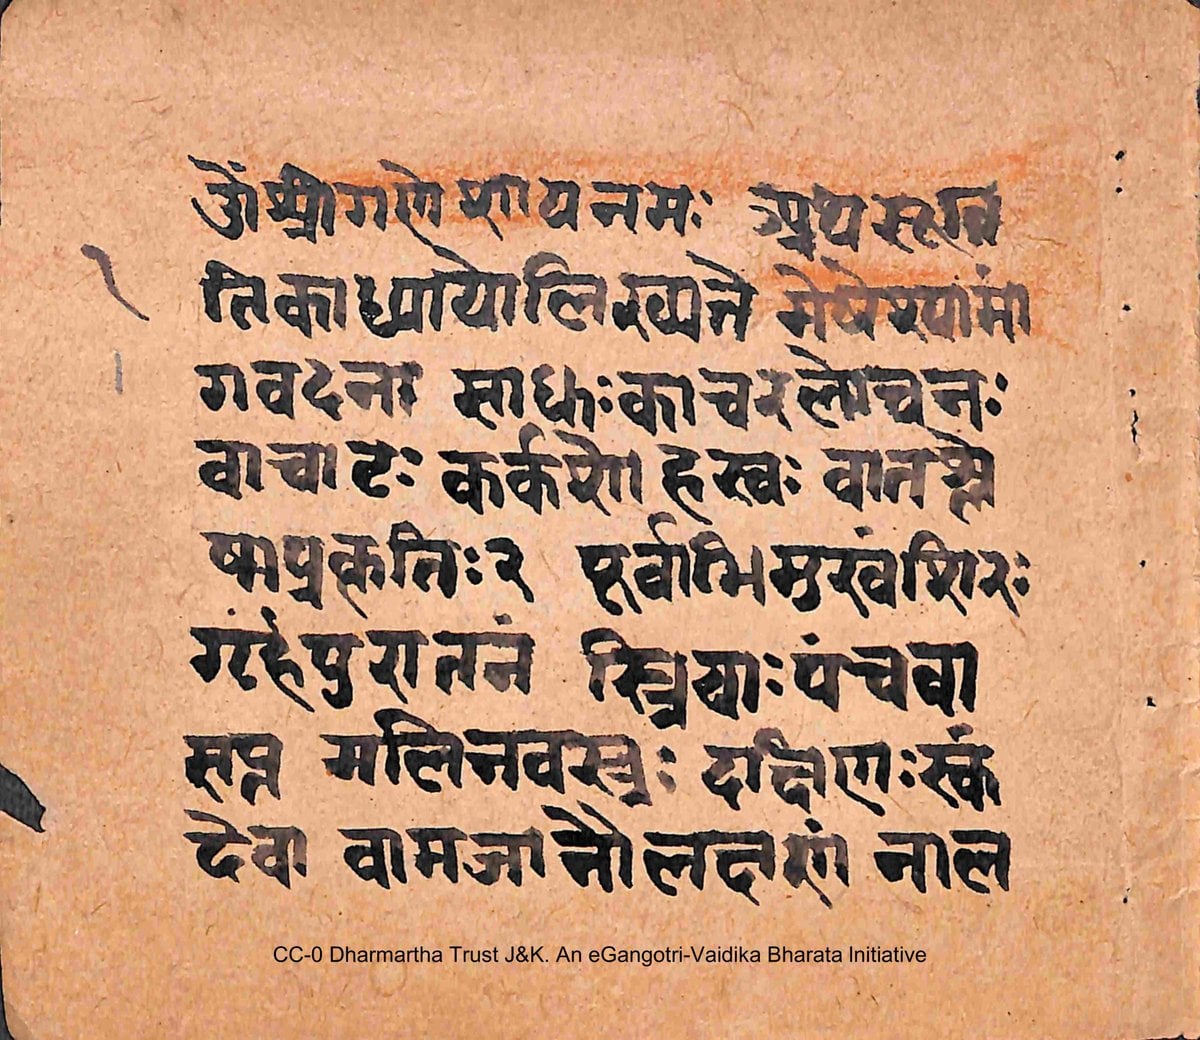 ॐश्रीगणेशायनमः अथसूति
तिकाध्यायोलिख्यते मेषेश्यामां
गवदना साधकःकाचरलोचनः
वाचाटः कर्कशोह्रस्वः वातश्ले
ष्माप्रकृतिः२ पूर्वाभिमुखंशिरः
गृहंपुरातनं स्त्रियाःपंचवा
सप्त मलिनवस्त्रः दक्षिणःस्कं
देवा वामजानौलक्षणं नाल
CC-0 Dharmartha Trust J&K. An eGangotri-Vaidika Bharata Initiative